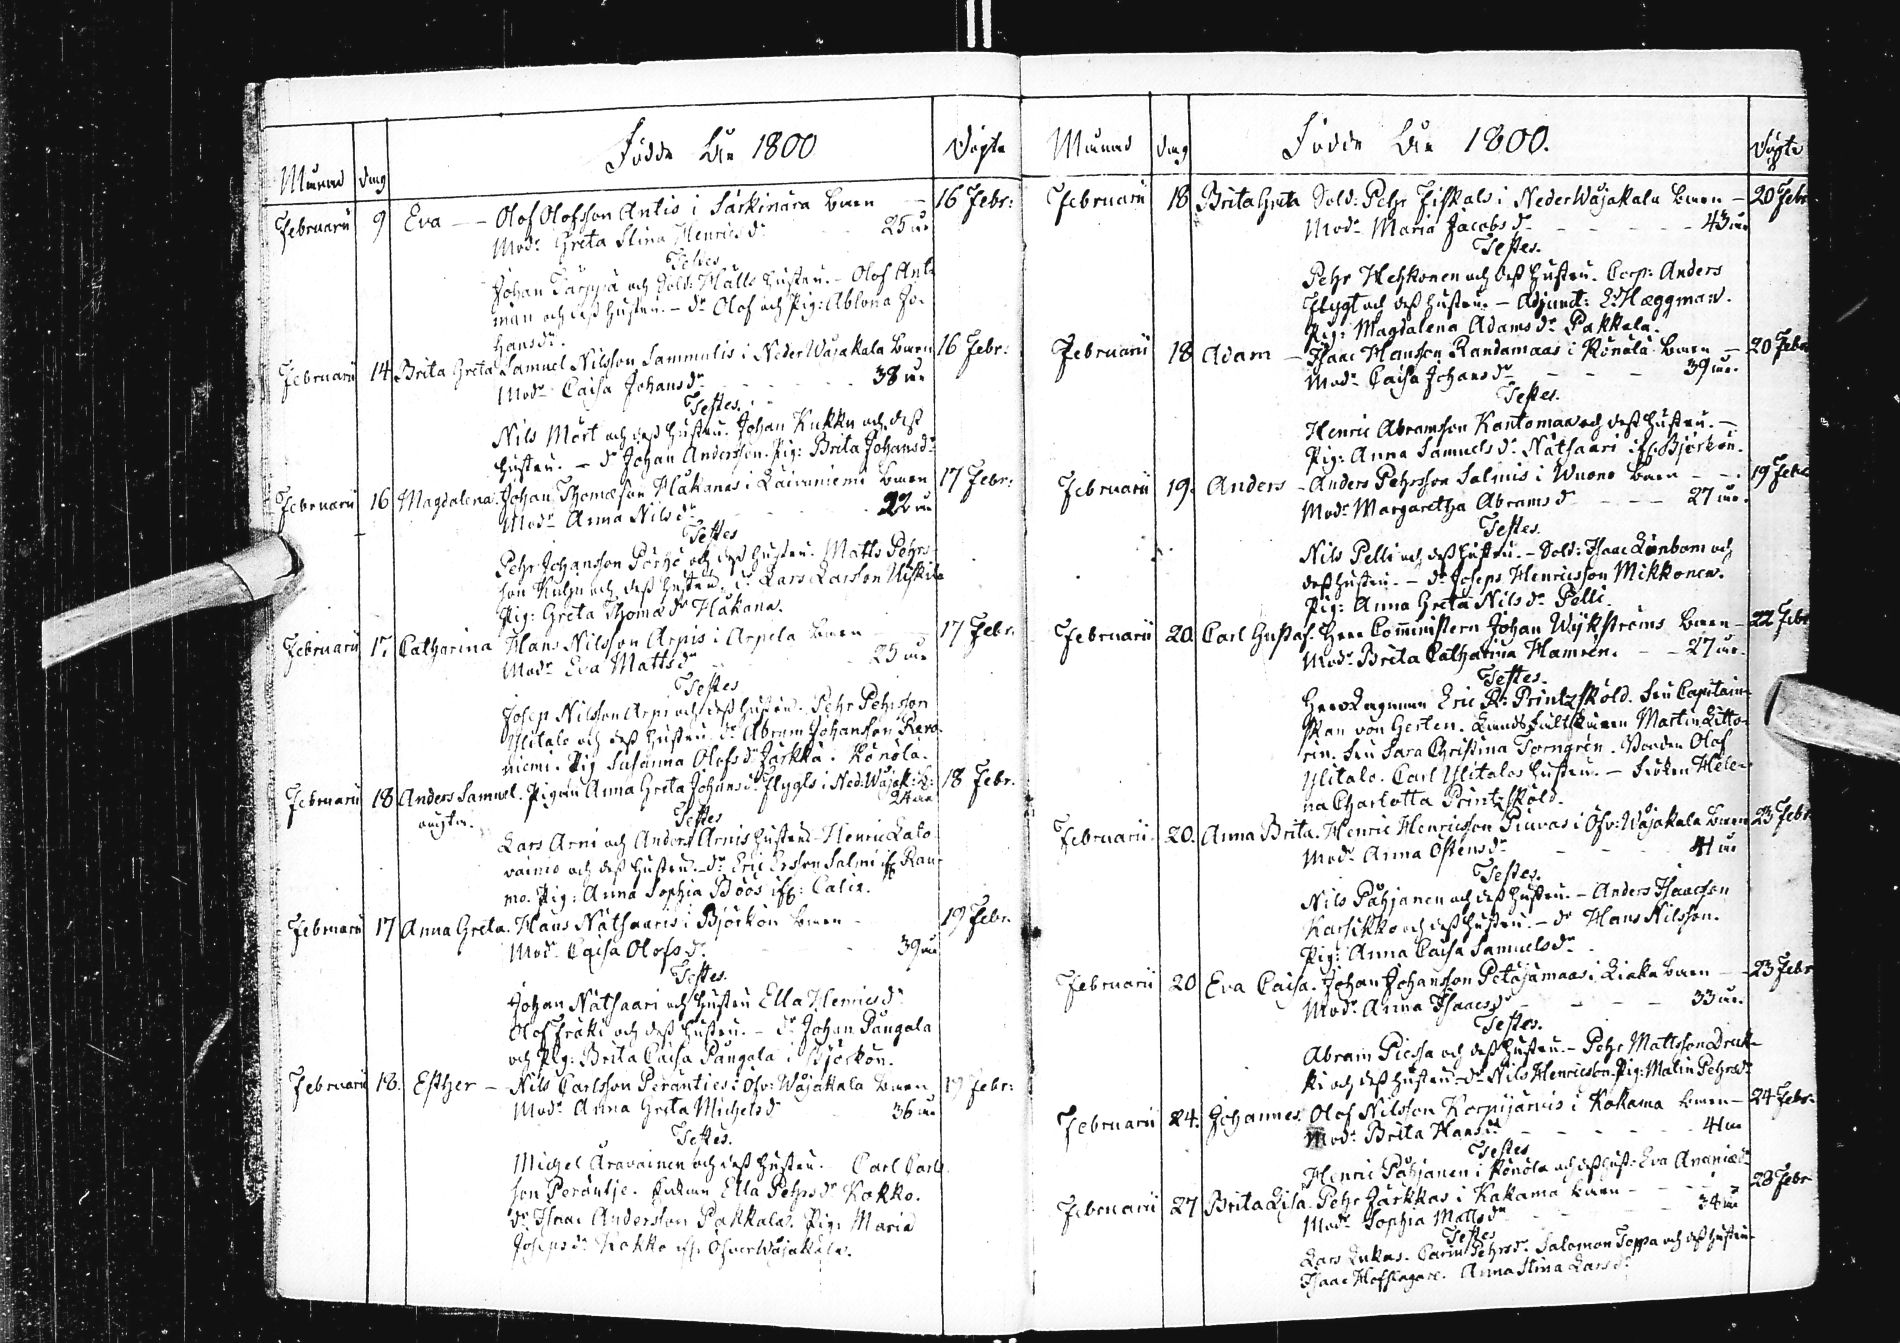 Månad dag Födde År 1800 Döpte
Februarii 9 Eva — Olof Olofsson Antis i Särkinära barn — 16 Febr:
Mod:r Greta Stina Henricsd:r 25 år
Testes
Johan Tärppä och Sold: Mälls hustru. — Olof Ant-
man och dess hustru. — d:r Olof och Pig: Ablona Jo-
hansd:r.
Februarii 14 Brita Greta Samuel Nilsson Sammulis i NederWäjakala barn 16 Febr:
Mod:r Caisa Johansd:r 38 år
Testes.
Nils Mört och dess hustru. Johan Kukko och dess
hustru. — d:r Johan Andersson. Pig: Brita Johansd:r
Februarii 16 Magdalena Johan Thomæson Håkanas i Laivaniemi barn 17 Febr:
Mod:r Anna Nilsd:r 22 år
Testes
Pehr Johansson Pörhö och dess hustru. Matts Pehrs-
son Kuhn och dess hustru. d:r Lars Larsson Niskila
Pig: Greta Thomæd:r Håkana.
Februarii 17 Catharina Hans Nilsson Arpis i Arpela barn 17 Febr.
Mod:r Eva Mattsd:r 25 år
Testes
Josep Nilsson Arpi och dess hustru. Pehr Pehrsson
Ylitalo och dess hustru. d:r Abram Johansson Revo-
niemi. Pig Susanna Olofsd:r Jarkkä. Könölä.
Februarii 18 Anders Samuel. Pigan Anna Greta Johansd:r Flygts i Ned:Wäjak: 18 Febr.
oägta. 24 år
Testes
Lars Arni och Anders Arnis hustru — Henric Lalo-
vainio och dess hustru. d:r Eric Ersson Salmi if: Rau-
mo. Pig: Anna Sophia Böös if: Calix.
Februarii 17 Anna Greta. Hans Nätsaaris i Björkön barn — 19 Febr.
Mod:r Caisa Olofsd:r 39 år
Testes.
Johan Nätsaari och hustru Ella Henricsd:r
Olof Fräki och dess hustru. — d:r Johan Pångala
och Pig: Brita Caisa Pångala i Björkön.
Februarii 18. Esther — Nils Carlsson Peränties i Öfv: Wäjakala barn 19 Febr:
Mod:r Anna Greta Michelsd:r 36 år
Testes.
Michel Aravainen och dess hustru. — Carl Carls-
son Peräntje. Enkan Ella Pehrsd:r Kokko.
d:r Isaac Andersson Pakkala. Pig: Maria
Josepsd:r Kokko if: ÖfverWäjakala.
Månad dag Födde År 1800. Döpte
Februarii 18 Brita Greta Sold: Pehr Fiskals i NederWäjakala barn — 20 Febr
Mod:r Maria Jacobsd:r 43 år
Testes.
Pehr Hehkonen och dess hustru. Corp: Anders
Flygt och dess hustru. — Adjunct: E: Hæggman.
Pig: Magdalena Adamsd:r Pakkala.
Februarii 18 Adam — Isaac Hansson Randamaas i Könölä barn — 20 Febr
Mod:r Caisa Johansd:r 39 år.
Testes.
Henric Abramsson Kantomaa och dess hustru. —
Pig: Anna Samuelsd:r Nätsaari if: Björkön.
Februarii 19. Anders — Anders Pehrsson Salmis i Wuono barn — 19 Febr
Mod:r Margaretha Abramsd:r 27 år.
Testes.
Nils Pelli och dess hustru. — Sold: Isaac Lönbom och
dess hustru. — d:r Joseps Henricsson Mikkonen.
Pig: Anna Greta Nilsd:r Pelli.
Februarii 20. Carl Gustaf. Herr Comministern Johan Wijkströms barn — 22 Febr
Mod:r Brita Catharina Hamren. 27 år.
Testes.
Herr Lagman Eric P: Printzsköld. Fru Capitain-
skan von Gerten. Martin Litto-
rin. Fru Sara Christina Torngren. Olof
Ylitalo. Carl Ylitalos hustru. — Fröken Hele-
na Charlotta Printzsköld.
Februarii 20. Anna Brita. Henric Henricsson Piuvas i Öfv: Wäjakala barn 23 Febr
Mod:r Anna Östensd:r 41 år
Testes.
Nils Påhjanen och dess hustru. — Anders Isaacsson
Karsikko och dess hustru. — d:r Hans Nilsson.
Pig: Anna Caisa Samuelsd:r
Februarii 20 Eva Caisa. Johan Johansson Petäjämaas i Liaka barn — 23 Febr
Mod:r Anna Isaacsd:r 33 år.
Testes.
Abram Piessa och dess hustru. — Pehr Mattsson Druk-
ki och dess hustru. — d:r Nils Henricsson. Pig: Malin Pehrsd:r
Februarii 24. Johannes. Olof Nilsson Korpijärvis i Kokama barn — 24 Febr.
Mod:r Brita Hansd:r 41 år
Testes
Henric Påhjanen i Könölä och dess hust: Eva Ananiæd:r
Februarii 27 Brita Lisa. Pehr Järkkas i Kakama barn — 28 Febr
Mod:r Sophia Mattsd:r 34 år
Testes
Lars Lukas. Carin Pehrsd:r. Salomon Toppa och dess hustru.
Isaac Hofslagare. Anna Stina Larsd:r